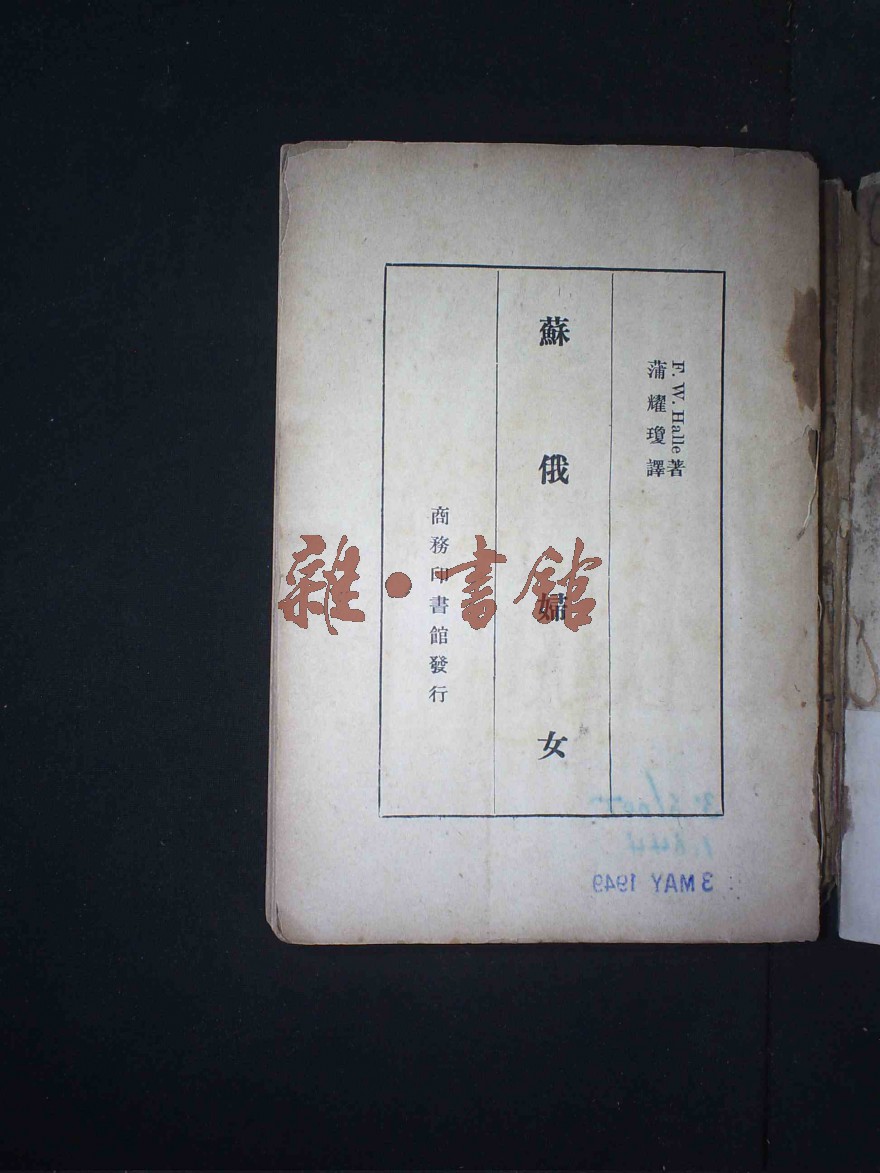 F. W. Halle著
蒲耀瓊譯
蘇俄婦女
商務印書館發行
雜·書館
3 MAY 1949